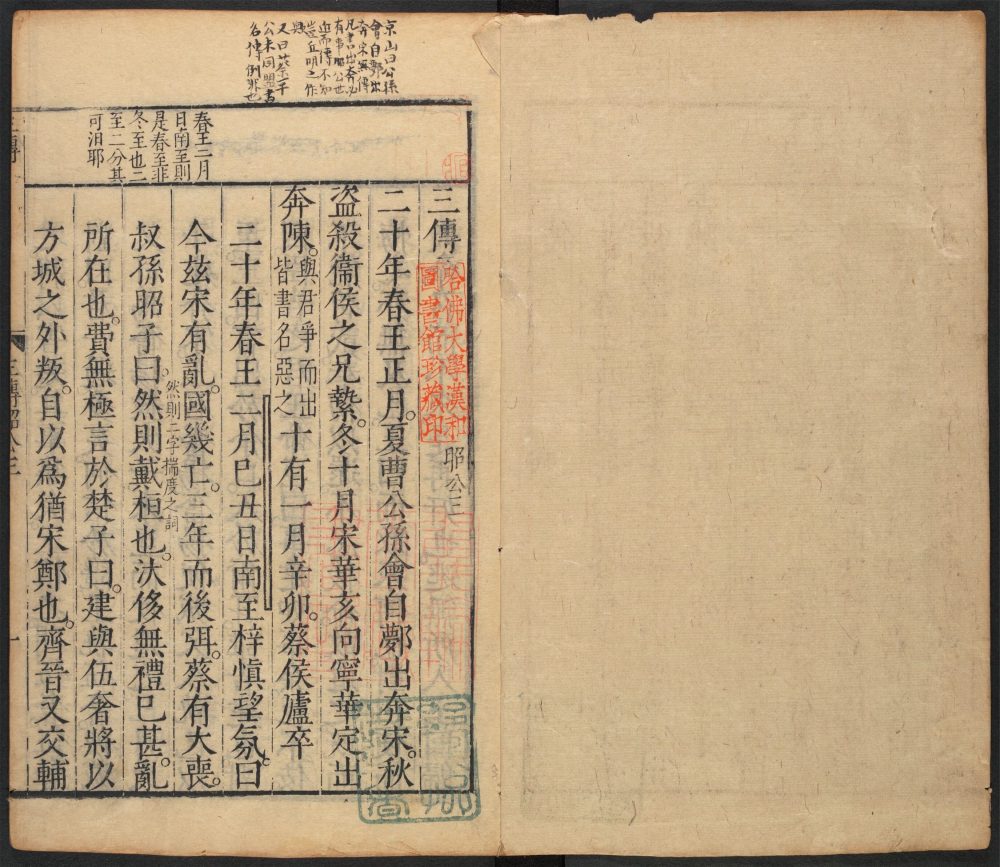 京山曰公孫
會自鄸出
奔宋無傳
凡書出奔必
有事昭公世
近而傳不知
豈丘明之作
與
又曰蔡平
公未同盟書
名傳例非也
春王二月
日南至則
是春至非
冬至也二
至二分其
可汨耶
三傳
昭公三
哈佛大學漢和
圖書館珍藏印
二十年春王正月。夏曹公孫會自鄸出奔宋。秋
盜殺衞侯之兄縶。冬十月宋華亥向寧華定出
奔陳。與君爭而出皆書名惡之十有一月辛卯。蔡侯廬卒
二十年春王二月巳丑日南至梓愼望氛。曰
今玆宋有亂。國幾亡。三年而後弭。蔡有大喪。
叔孫昭子曰。然則戴桓也。汏侈無禮巳甚。亂
然則二字揣度之詞
所在也。費無極言於楚子曰。建與伍奢將以
方城之外叛。自以爲猶宋鄭也。齊晉又交輔
三傳昭公三
一